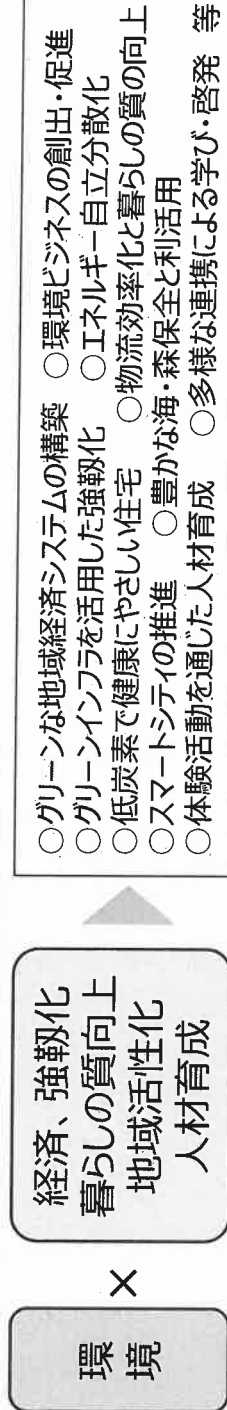 環
境
×
経済、強靱化
暮らしの質向上
地域活性化
人材育成
○グリーンな地域経済システムの構築 ○環境ビジネスの創出・促進
○グリーンインフラを活用した強靱化 ○エネルギー自立分散化
○低炭素で健康にやさしい住宅 ○物流効率化と暮らしの質の向上
○スマートシティの推進 ○豊かな海・森保全と利活用
○体験活動を通じた人材育成 ○多様な連携による学び・啓発 等